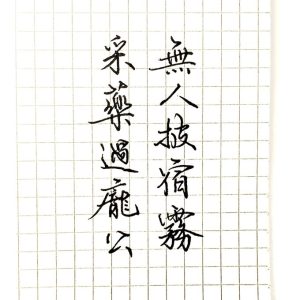 無人披宿霧
采藥過龐公